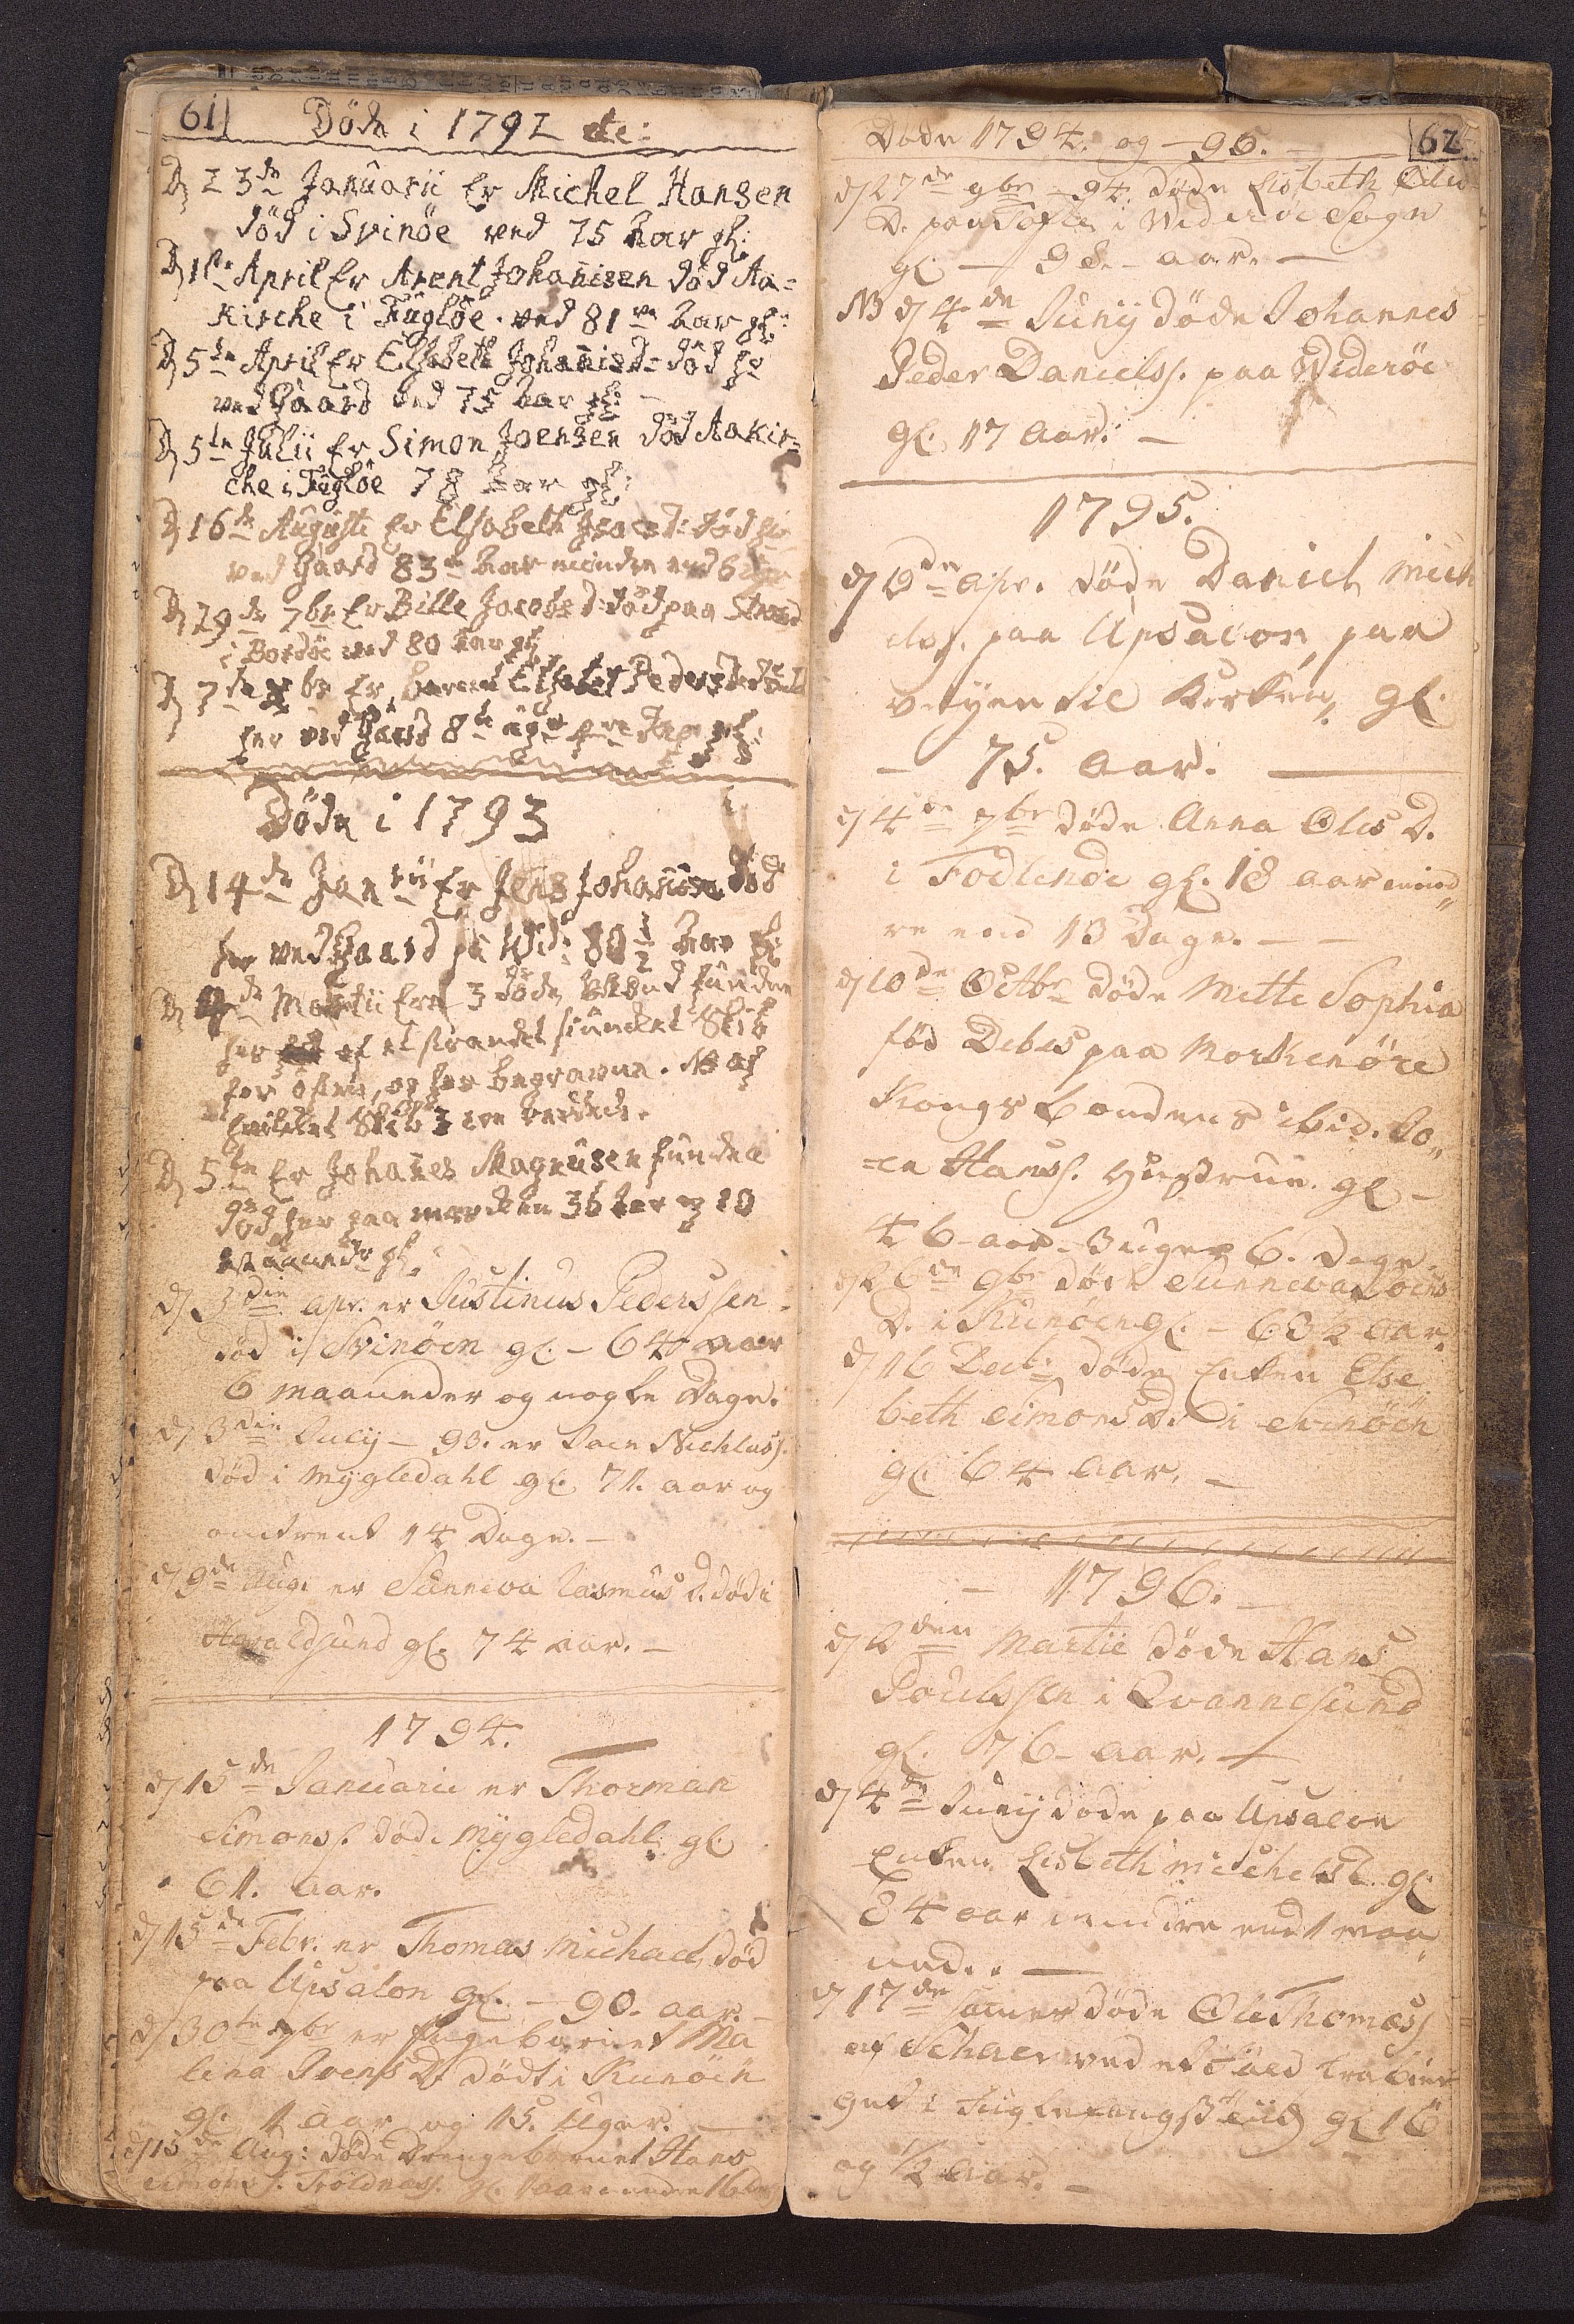 61 Döde i 1792 etc:
D 23de Januarii Er Michel Hansen
död i Svinöe ved 75 Aar gl:
D 1ste April Er Arent Johannisen död Aa=
kirche i Fugløe. ved 81ve Aar gl:
D 5te April Er Elsebeth Johannisd: död her
ved Gaard ved 75 Aar gl: –
D 5te Julii Er Simon Joensen död Aakir=
che i Fugløe 78 Aar gl:
D 16de Augusti Er Elsebeth Isacsd: död her
ved Gaard 83de Aar mindre end 6 uger
D 29de 7br Er Bille Jacobs d: död paa Strand
i Bordöe ved 80 Aar gl
D 7de br Er barnet Elsebet Pedersdatter död
her ved Gaard 8te uger gl:
Döde i 1793
D 14de Janrii Er Jens Johannisen död
her ved Gaard på Wid: 80 1/2 Aar gl:
D de Martii Er 3 döde Mænd fundne
her af et strandet siunket Skib
for östen, og her begravne. NB af
hvilket Skib 3 ere
D 5te Er Johanes Magnusen funden
död her paa marcken 36 Aar og 10
maaneder gl:
d 3die apr. er Justinus Pederssen
död i Svinöen gl. – 64 aar
6 maaneder og nogle Dage.
d 3die Julij – 93. er Joen Nichlass.
död i Mygledahl gl. 71. aar og
omtrent 14 Dage. –
d 9de Aug. er Sunneva Rasmus D. död i
Haraldsund gl. 74 aar. –
1794.
d 15de Januarii er Thorman
Simons s. död i Mygledahl gl.
61. aar.
d 15de Febr. er Thomas Michaels. död
paa Upsalon gl. – 90. aar. –
d 30te 7br er Pigebarnet Ma
lena Joens D. dödt i Kunöen
gl. 1 aar og 15. Uger. –
d 15de Aug: döde Drengebarnet Hans
Simons s. Troldnæss. gl. 1 aar mindre 16 Dage
Döde 1794. og – 95. – 62
d 27de 9br – 94. döde Lisbeth Ole
D. paa Tofte i Wideröe Sogn
gl – 98. – aar. –
NB d 4de Junij döde Johannes
Peder Daniels s. paa Wideröe
gl. 17 Aar. –
1795.
d 9de apr. döde Daniel Mich
els s. paa Upsalon, paa
veyen til Kirken, gl.
– 75. aar. –
d 4de 7br döde Anna Oles D.
i Fodlenöe gl. 18 aar mind
re end 13 Dage. – –
d 10de Octbr döde Mette Sophia
föd Debes paa Morkenöre
Kongsbondens ibid. Jo„
=en Hanss. Hustrue. gl –
46 – aar – 3 uger 6. Dage.
d 26de 9br döde Sunneva Joens
D. i Kunöen gl. – 63 1/2 aar.
d 16 Decb. döde Enken Else
beth Simons D. i Svinöen
gl. 64 aar. –
– 1796. –
d 2den Martii döde Hans
Poulssen i Qvannesund
gl. 76 – aar. –
d 4de Junij döde paa Upsalon
Enken Lisbeth Michels D. gl.
84 aar mindre end 1 maa
ned. . –
d 17de samer döde Ole Thomæs s.
af Schaer ved et Fald tra
ged i Fuglefangst gl 16
og 1/2 aar. –